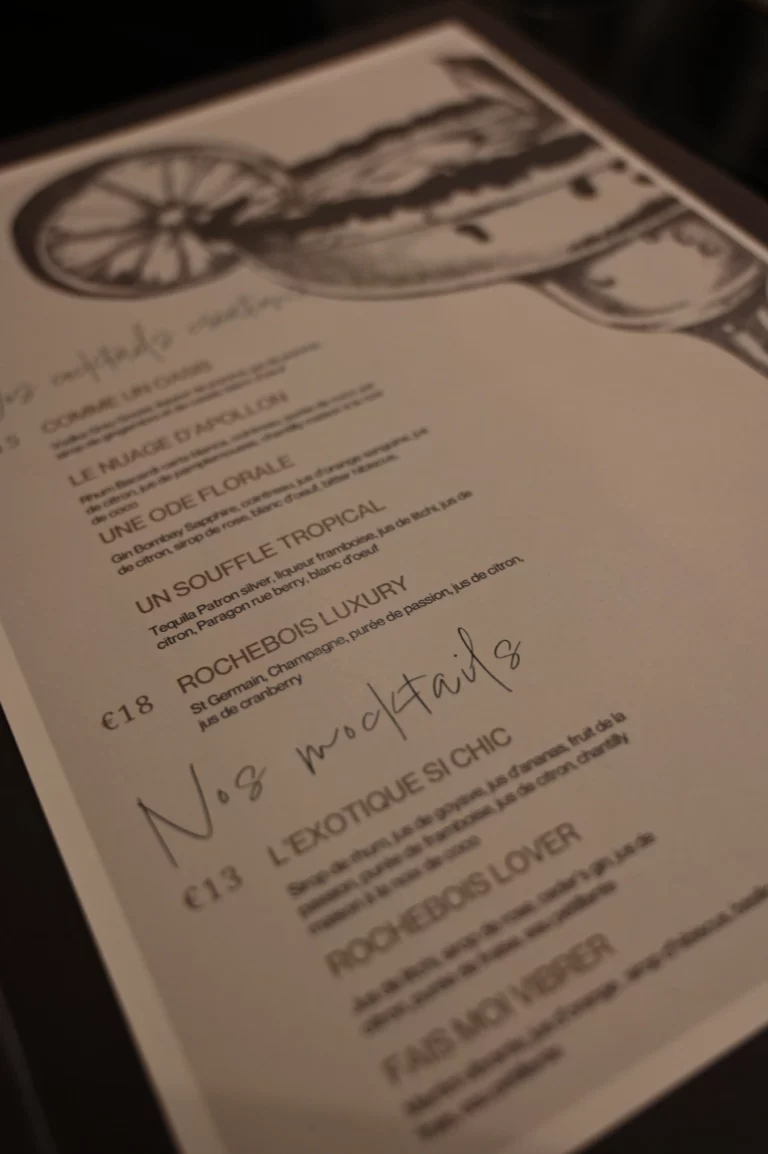 Nos cocktails
COMME UN OASIS
LE NUAGE D'APOLLON
Rhum Bacardi carta blanca, cointreau, purée de coco, jus
de citron, jus de pamplemousse, chantilly maison à la noix
de coco
UNE ODE FLORALE
Gin Bombay Sapphire, cointreau, jus d'orange sanguine, jus
de citron, sirop de rose, blanc d'oeuf, bitter hibiscus.
UN SOUFFLE TROPICAL
Tequila Patron silver, liqueur framboise, jus de litchi, jus de
citron, Paragon rue berry, blanc d'oeuf
ROCHEBOIS LUXURY
€18 St Germain, Champagne, purée de passion, jus de citron,
jus de cranberry
Nos mocktails
L'EXOTIQUE SI CHIC
€13 Sirop de rhum, jus de goyave, jus d'ananas, fruit de la
passion, purée de framboise, jus de citron, chantilly
maison à la noix de coco
ROCHEBOIS LOVER
Jus de litchi, sirop de rose, ceder's gin, jus de
citron, purée de fraise, eau pétillante
FAIS MOI VIBRER
jus d'orange, sirop d'hibiscus, basilic
eau pétillante